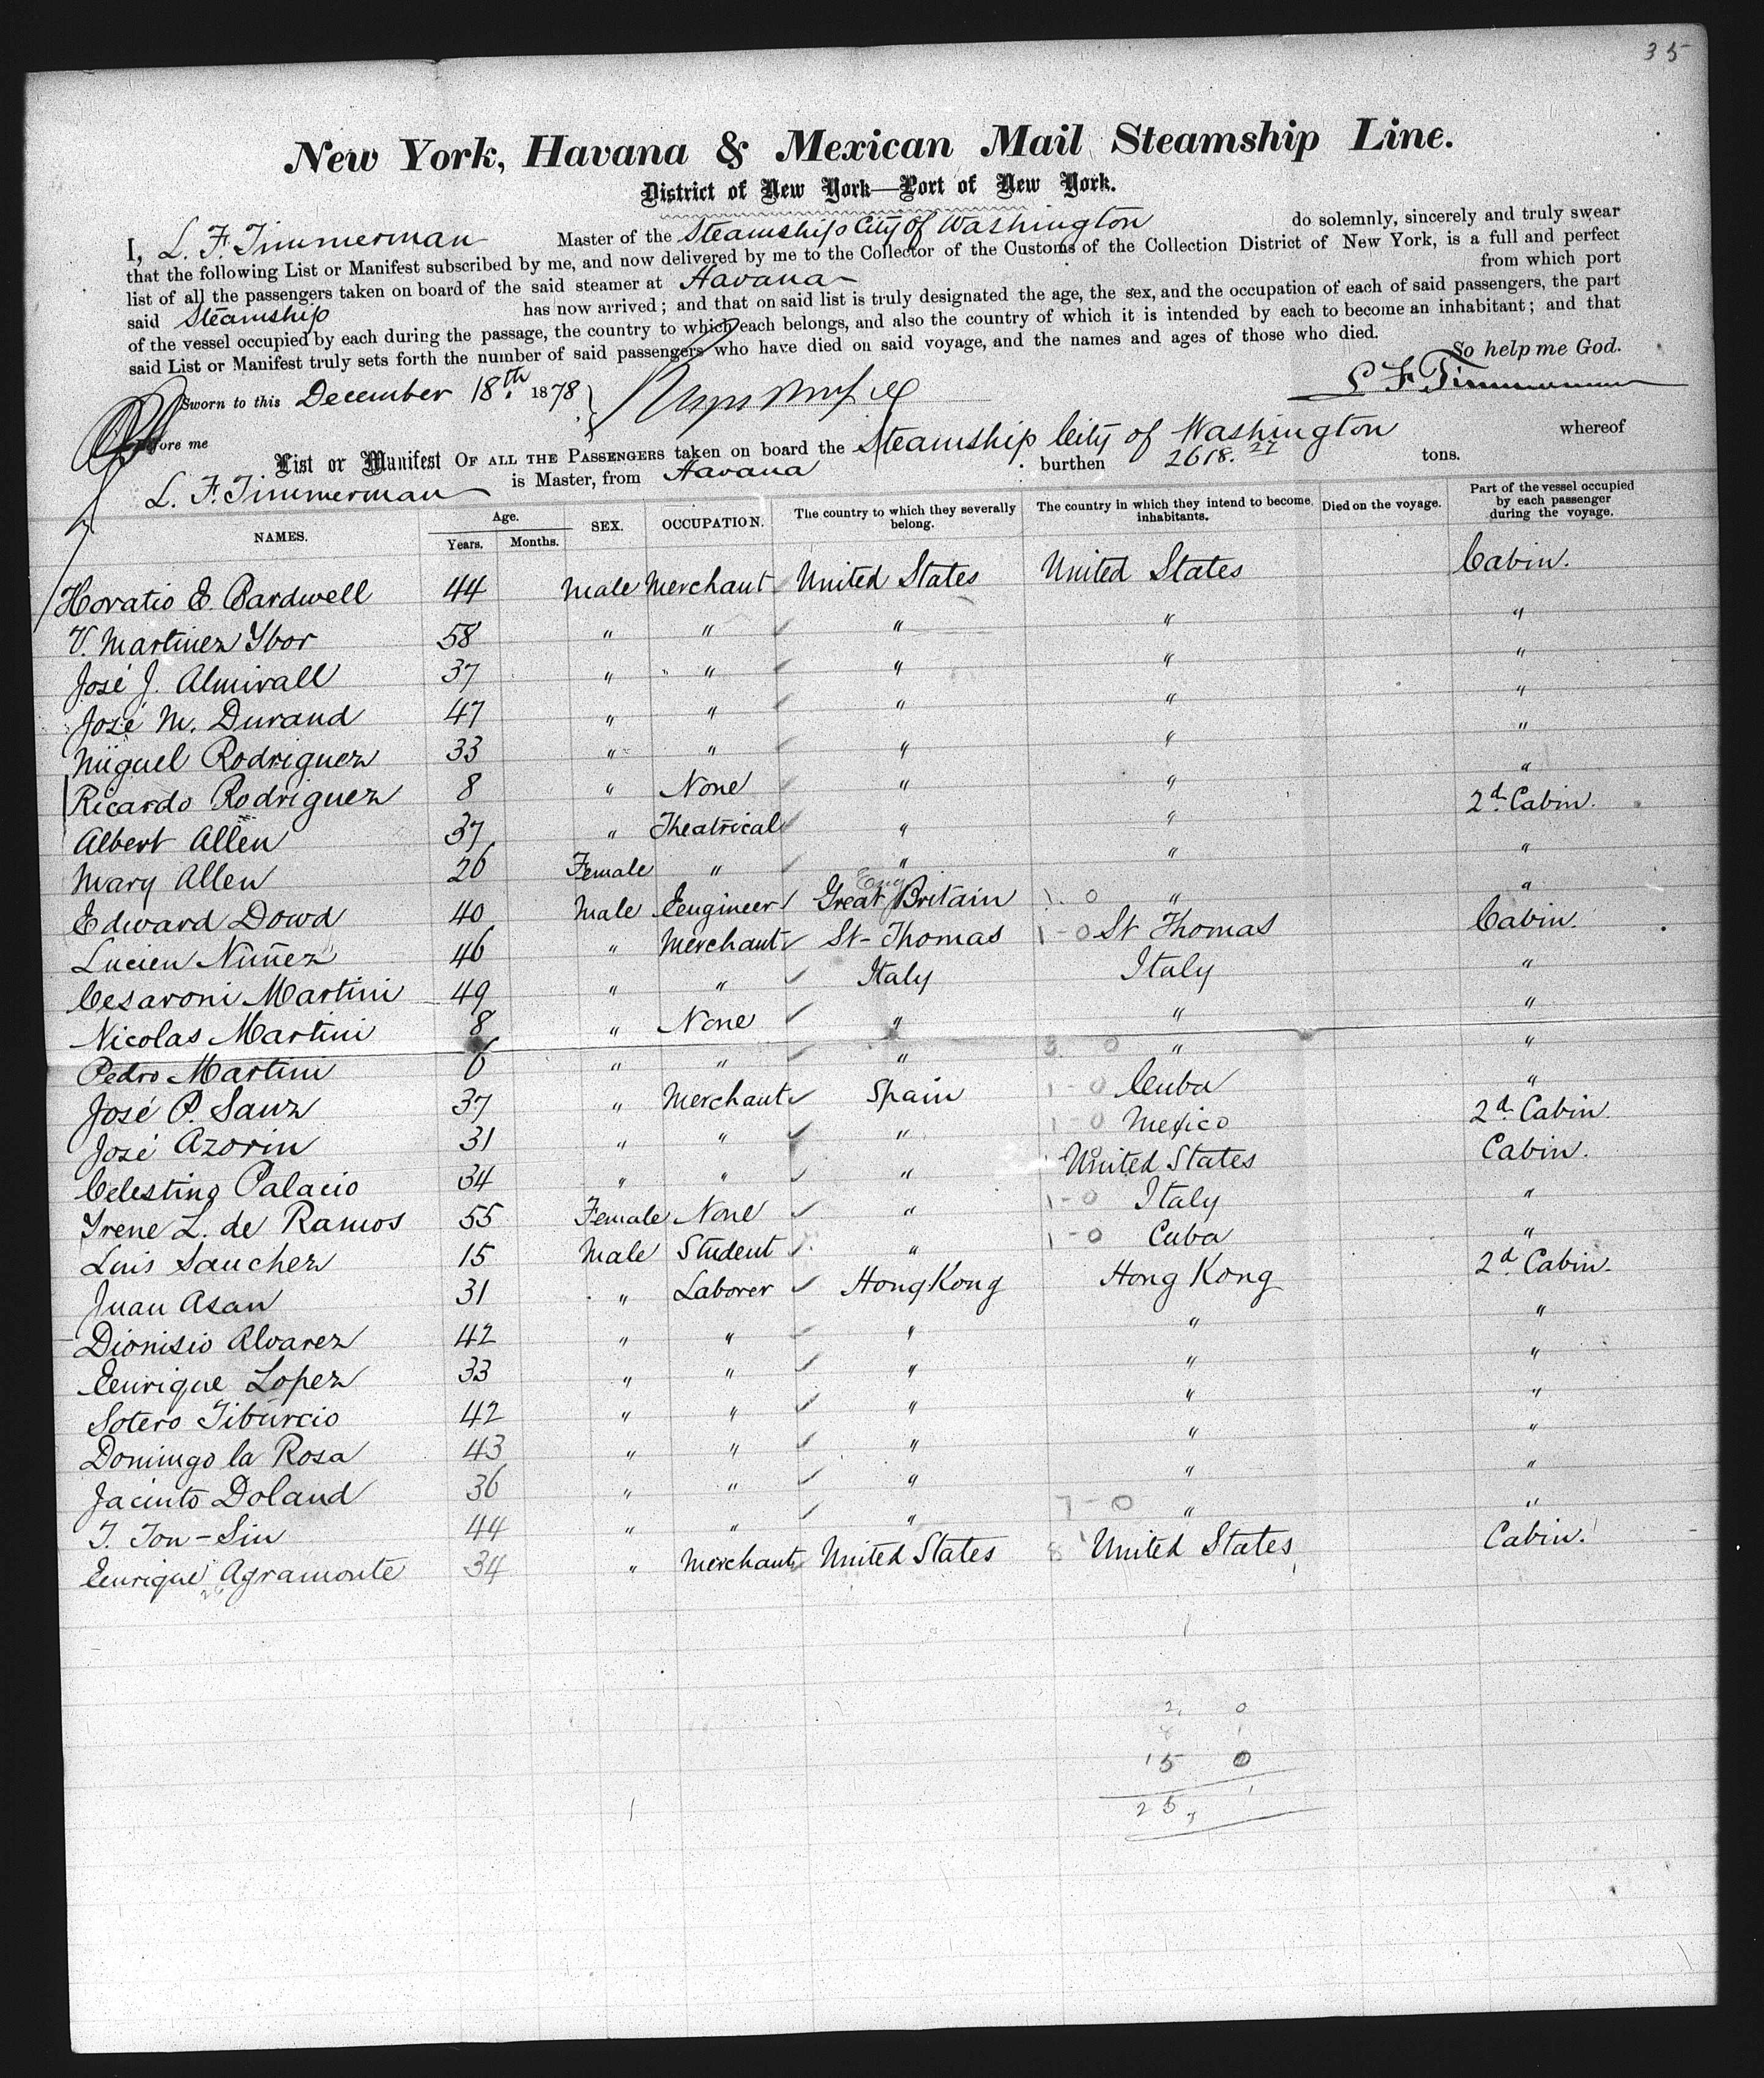 35
New York, Havana & Mexican Mail Steamship Line.
District of New York—Port of New York.
I, L. F. Timmerman Master of the Steamship City of Washington do solemnly, sincerely and truly swear
that the following List or Manifest subscribed by me, and now delivered by me to the Collector of the Customs of the Collection District of New York, is a full and perfect
list of all the passengers taken on board of the said steamer at Havana from which port
said Steamship has now arrived; and that on said list is truly designated the age, the sex, and the occupation of each of said passengers, the part
of the vessel occupied by each during the passage, the country to which each belongs, and also the country of which it is intended by each to become an inhabitant; and that
said List or Manifest truly sets forth the number of said passengers who have died on said voyage, and the names and ages of those who died.
So help me God.
Sworn to this December 18th. 1878 L F Timmerman
before me
List or Manifest OF ALL THE PASSENGERS taken on board the Steamship City of Washington whereof
L. F. Timmerman is Master, from Havana burthen 2618. 27 tons.
NAMES. Age. Years. Months. SEX. OCCUPATION. The country to which they severally belong. The country in which they intend to become inhabitants. Died on the voyage. Part of the vessel occupied by each passenger during the voyage.
Horatio E. Bardwell 44 Male Merchant United States United States Cabin.
V. Martinez Ybor 58 " " " " "
José J. Almirall 37 " " " " "
José M. Durand 47 " " " " "
Miguel Rodriguez 33 " " " " "
Ricardo Rodriguez 8 " None " " "
Albert Allen 37 " Theatrical " " 2d. Cabin.
Mary Allen 26 Female " " " "
Edward Dowd 40 Male Eengineer Eng Great Britain 1. 0 " "
Lucien Nuñez 46 " Merchant St-Thomas 1-0 St Thomas Cabin.
Cesaroni Martini 49 " " Italy Italy "
Nicolas Martini 8 " None " " "
Pedro Martini 6 " " " 3 0 " "
José P. Sanz 37 " Merchant Spain 1-0 Cuba "
José Azorin 31 " " " 1-0 Mexico 2d. Cabin
Celestino Palacio 34 " " " United States Cabin.
Irene L. de Ramos 55 Female None " 1-0 Italy "
Luis Sanchez 15 Male Student " 1-0 Cuba "
Juan Asan 31 " Laborer Hong Kong Hong Kong 2d. Cabin.
Dionisio Alvarez 42 " " " " "
Eenrique Lopez 33 " " " " "
Sotero Tiburcio 42 " " " " "
Domingo la Rosa 43 " " " " "
Jacinto Doland 36 " " " " "
T. Ton-Sin 44 " " " 7-0 " "
Eenrique Agramonte 34 " Merchant United States 8 United States Cabin.
2 0
8 1
15 0
25 1